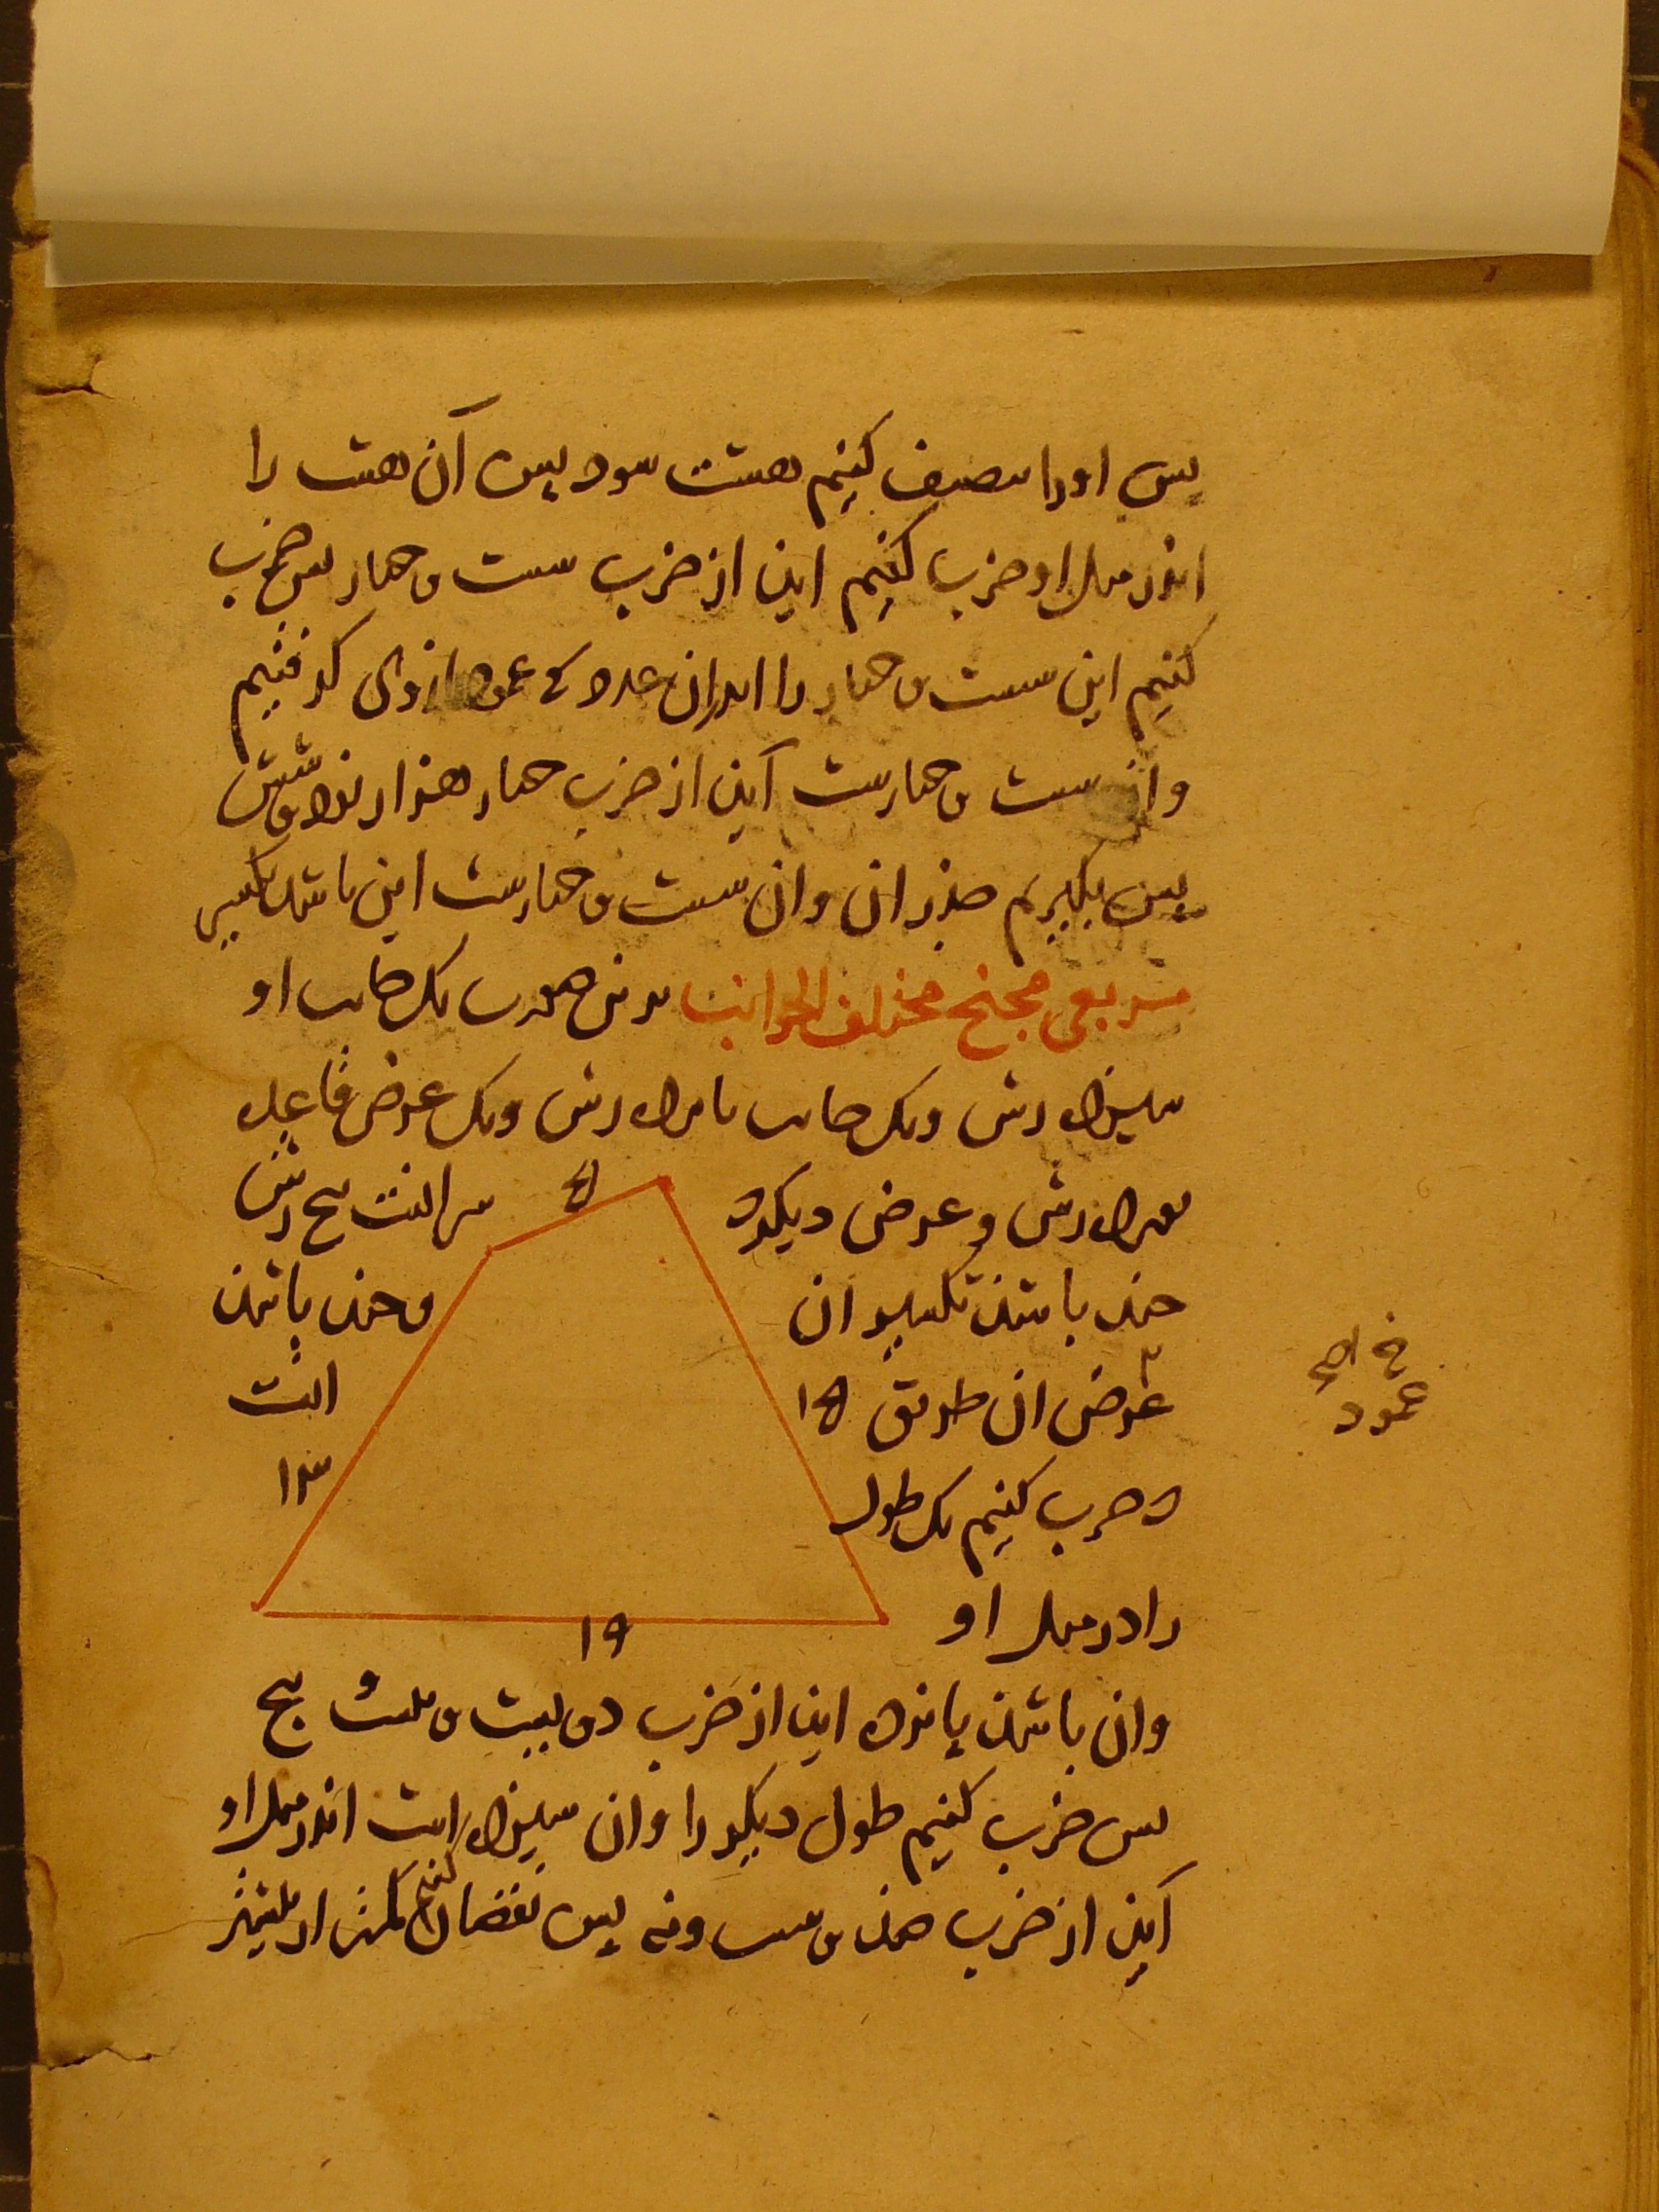 پس او را نصف کنیم هشت شود پس آن هشت را
اندر مثل او ضرب کنیم این از ضرب شست و چهار پس ضرب
کنیم این شست و چهار را اندران عدد کی عمود ازوی کرفتیم
وان شست و چهارست آین از ضرب چهار هزار نود و شش
پس بکیریم جذر ان وان شست و چهارست این باشد تکسیر
مربعی مجنح مختلف الجوانب بدین صورت یک جانب او
سیزده رش ویک جانب پانزده رش ویک عرض قاعده
نوزده رش و عرض دیکر
سر انست پنج رش
چند باشد تکسیر ان
و چند باشد
عرض ان طریق
انست
ضرب کنیم یک طول
را در مثل او
وان باشد پانزده این از ضرب دویست و بیست و پنج
پس ضرب کنیم طول دیکر را وان سیزده است اندر مثل او
آین از ضرب صد و شست ونه پس نقصان کنیم کمتر از بیشتر
خ اصح
عمود
۵
۱۵
۱۳
۱۹